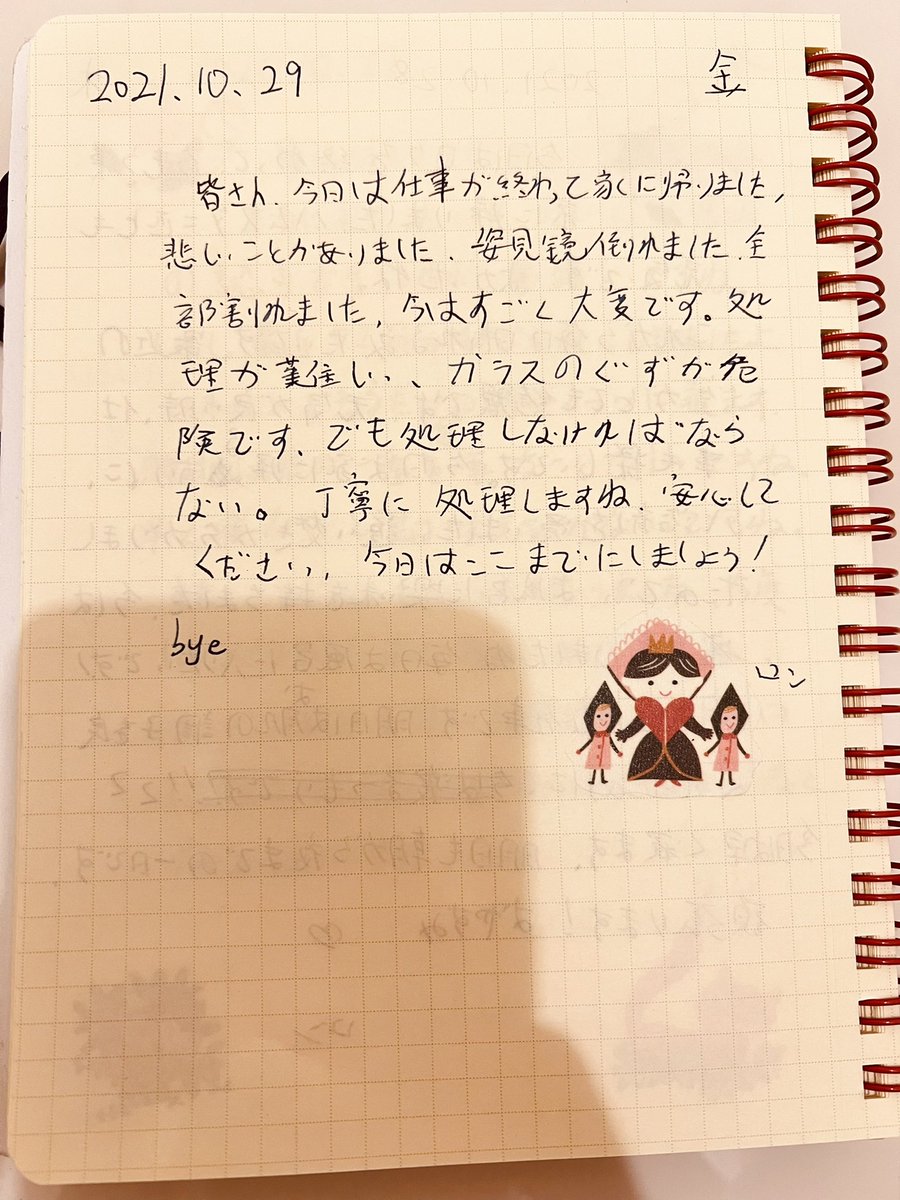 2021.10.29 金
皆さん、今日は仕事が終わって家くに帰りました,
悲しいことがありました、姿見鏡倒れました、全
部割れました, 今はすごく大変です。処
理が難しい、ガラスのくずが危
険です、でも処理しなければなら
ない。丁寧に処理しますね、安心して
ください, 今日はここまでにしましょう!
bye
ロン